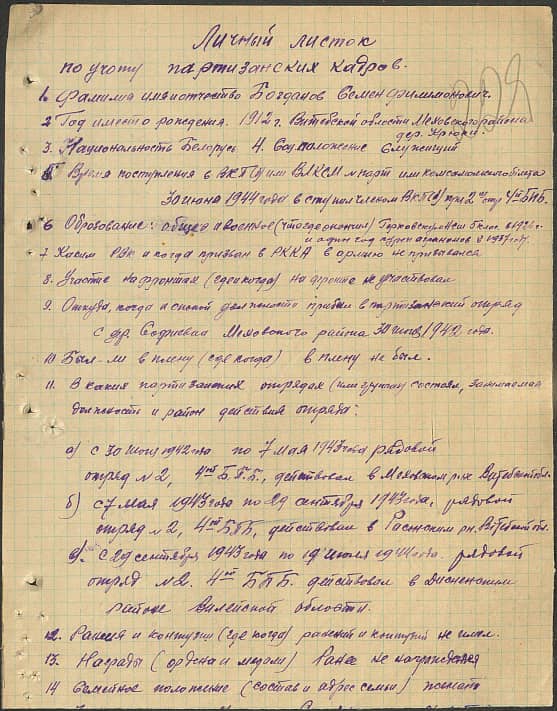 Личный листок
по учоту партизанских кадров.
1. Фамилия имя отчество Богданов Семен Филимонович.
2 Год и место рождения. 1912 г. Витебской области Меховского района
дер.
3. Национальность Беларусь 4. Соц. положение служащий
5 Время поступления в ВКП(б) или ВЛКСМ и парт или комсомольского билета
30 июня 1944 года вступил членом ВКП(б) при 4ой БПБ.
6 Образование: общее и военное (что где окончил)
и один год
7 Каким РВК и когда призван в РККА в армию не призывался
8. Участие на фронтах (где и когда) на фронте не участвовал
9. Откуда, когда и с какой должности прибыл в партизанский отряд
с др. Меховского района 30 июня 1942 года.
10 Был-ли в плену (где когда) в плену не был.
11. В каких партизанских отрядах (или группах) состоял, занимаемая
должность и район действия отряда:
а) с 30 июня 1942 года по 7 мая 1943 года рядовой
отряд №2, 4ой Б.П.Б., действовал в Меховском р-не Витебской обл.
б) с 7 мая 1943 года по 29 сентября 1943 года, рядовой
отряд №2, 4ой БПБ, действовал в Расонском рн. Витебской обл.
в) с 29 сентября 1943 года по июля 1944 года. рядовой
отряд №2. 4ой БПБ действовал в Дисненском
районе Вилейской области.
12. Ранения и контузии (где когда) ранений и контузий не имел.
13. Награды (ордена и медали) Ранее не награждался
14 Семейное положение (состав и адрес семьи) женат